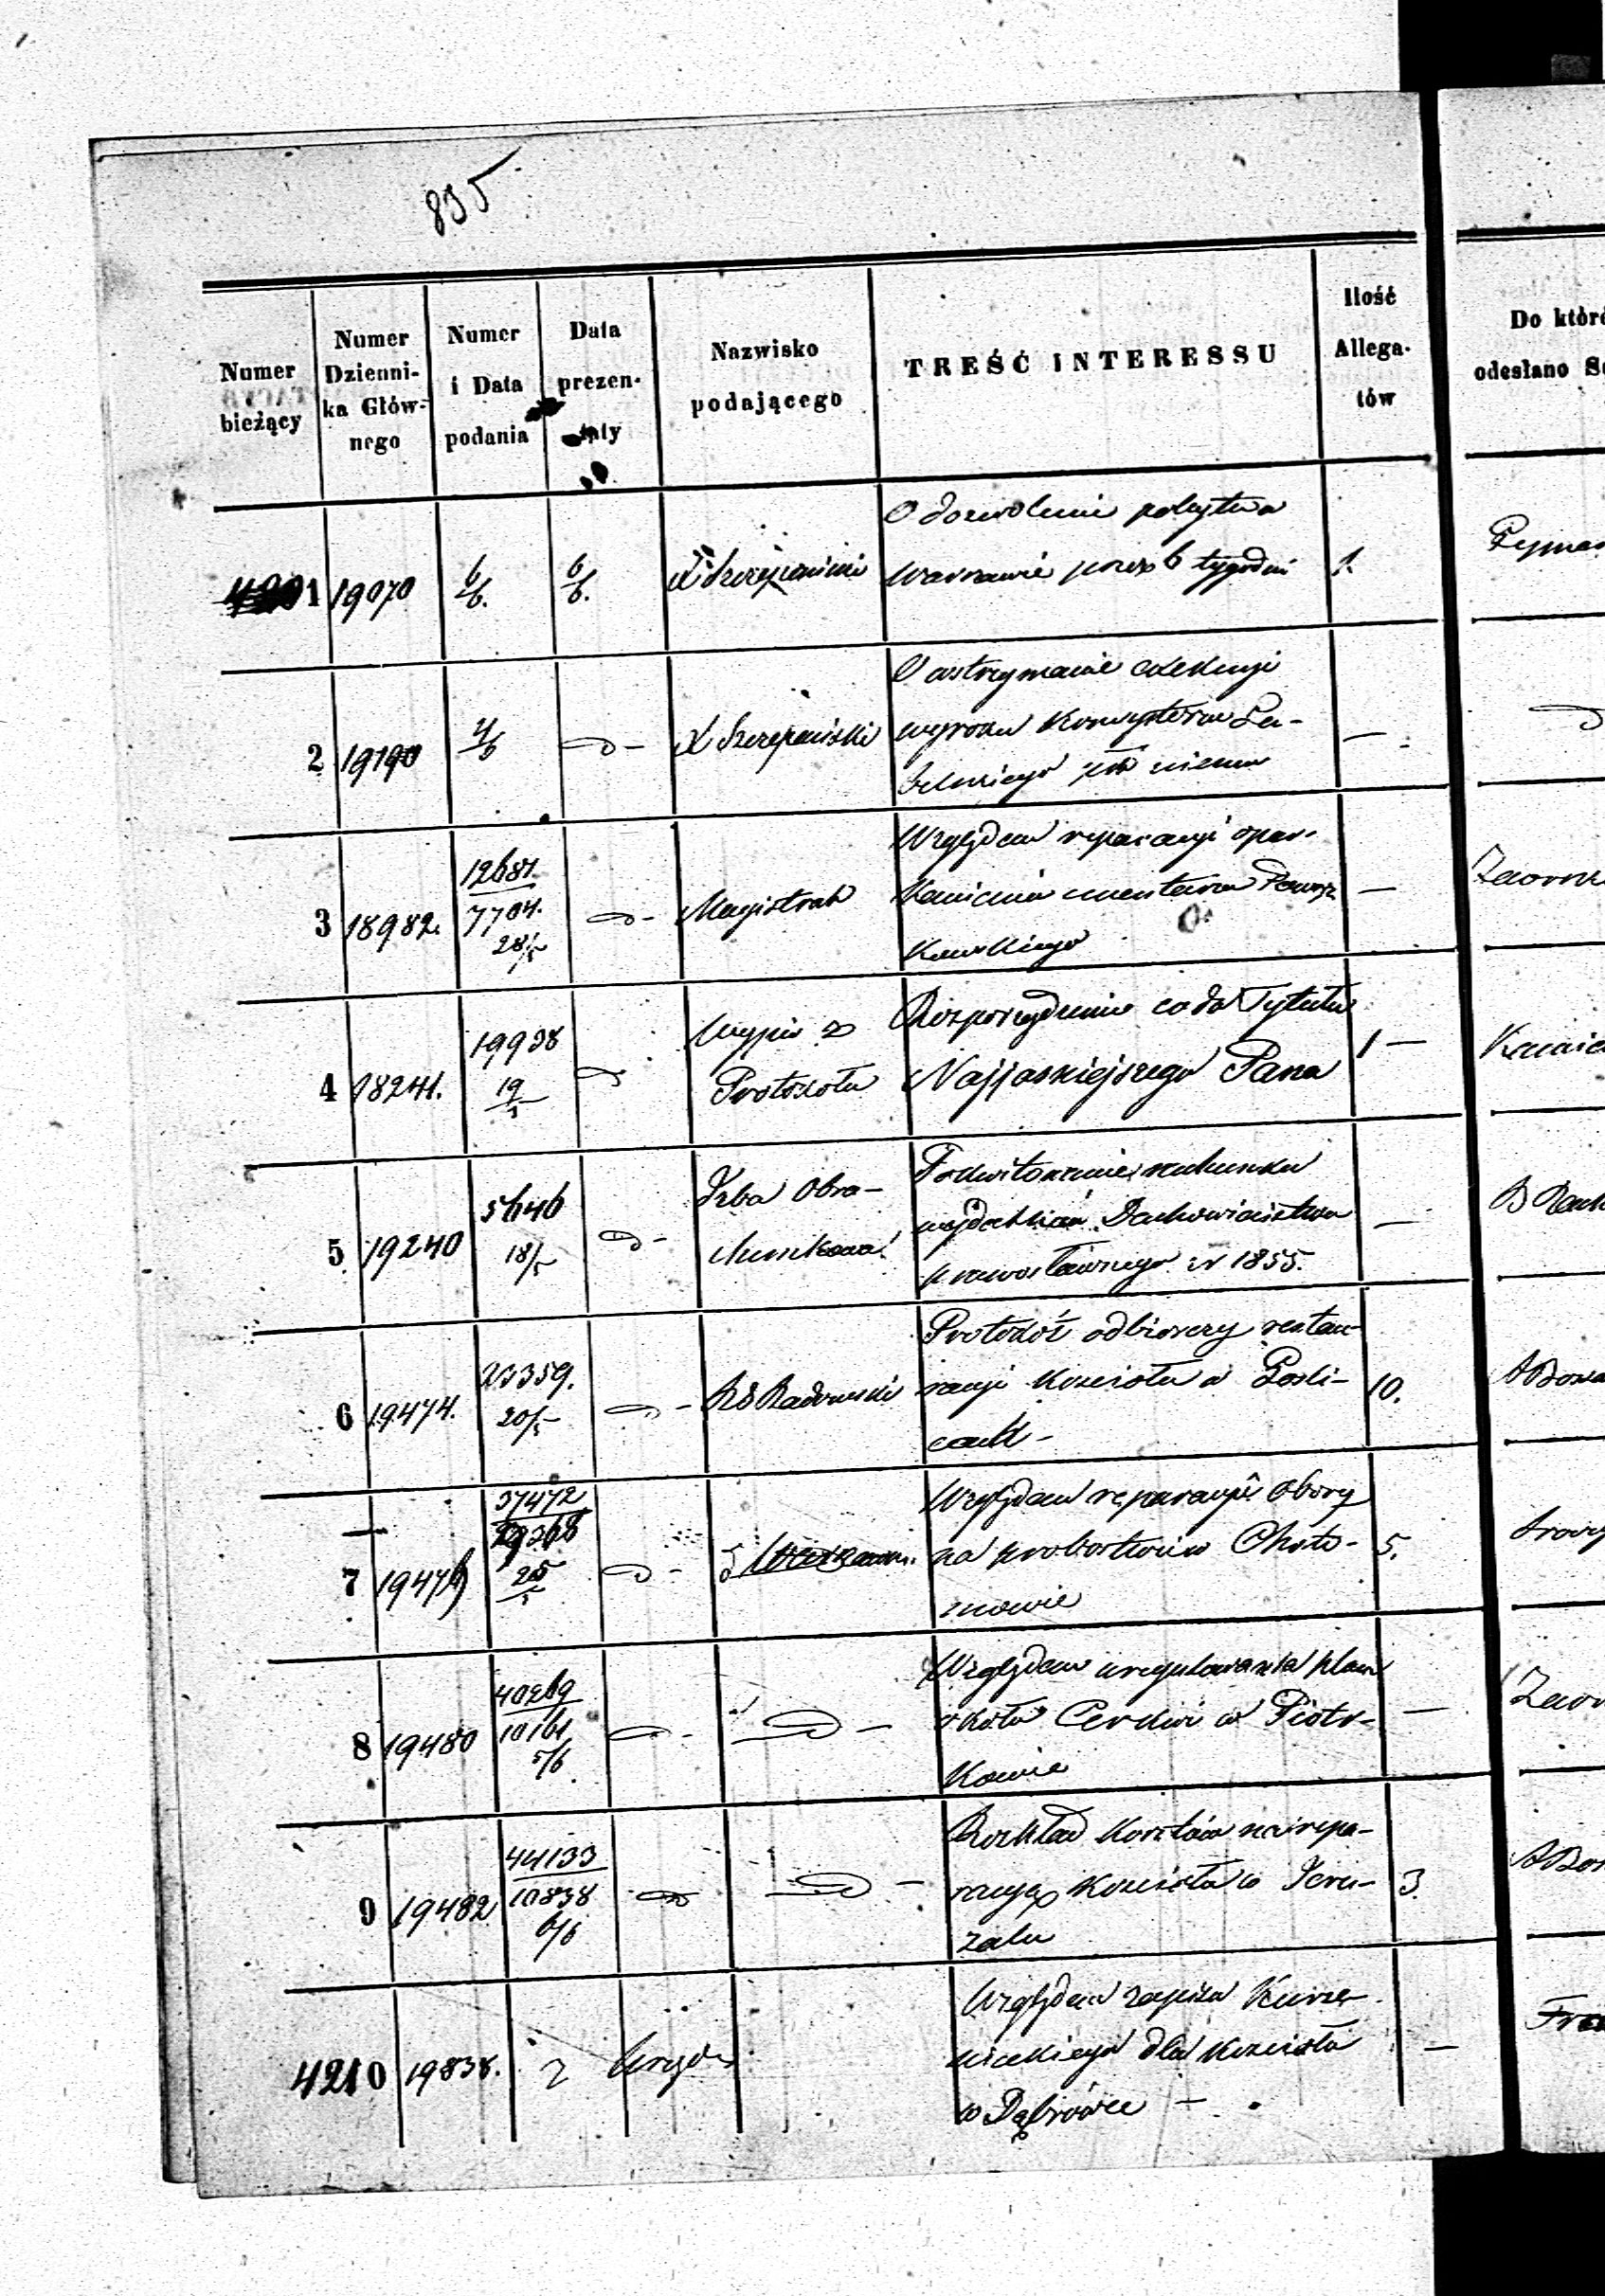 835
Numer bieżący
Numer Dzienni-ka Głów-nego
Numer i Data podania
Data prezen-taty
Nazwisko podającego
TREŚĆ INTERESSU
Ilość Allega-tów
Do któr
odesłano
1 19070 6/6. 6/6. X Szczepański
O dozwolenie pobytu w
Warszawie przez 6 tygodni 1.
2 19190 4/6 X Szczepański
O wstrzymanie exekucyi
wyroku Konsystorza Lu-
belskiego —
3 18982. 12681. 7704. 28/5 Magistrat
Względem reparacyi opar-
kanienia cmentarza Powąz
kowskiego —
4 18241. 19938 19/5 Wypis z Protokołu
Rozporządzenie co do Tytułu
Najjaśniejszego Pana 1 —
5 19240 5646 18/5 Izba Obra-
chunkowa
Pokwitowanie rachunku
wydatków Duchowieństwa
prawosławnego w 1855. —
6 19474. 23359. 20/5 RG Radomski
Protokół odbiorczy restau-
racyi Kościoła w Gośli-
cach - 10.
7 19476 37472 25/5
Względem reparacyi Obory
na probostwie w Choto-
mowie 5.
8 19480 40269 10161 5/6
Względem uregulowania placu
około Cerkwi w Piotr-
kowie —
9 19482 44133 10838 6/6
Rozkład kosztów na repa-
racyą Kościoła w Jeru-
zalu 3.
4210 19838. z Urzędu
Względem zapisu
dla Kościoła
w Dąbrówce — —